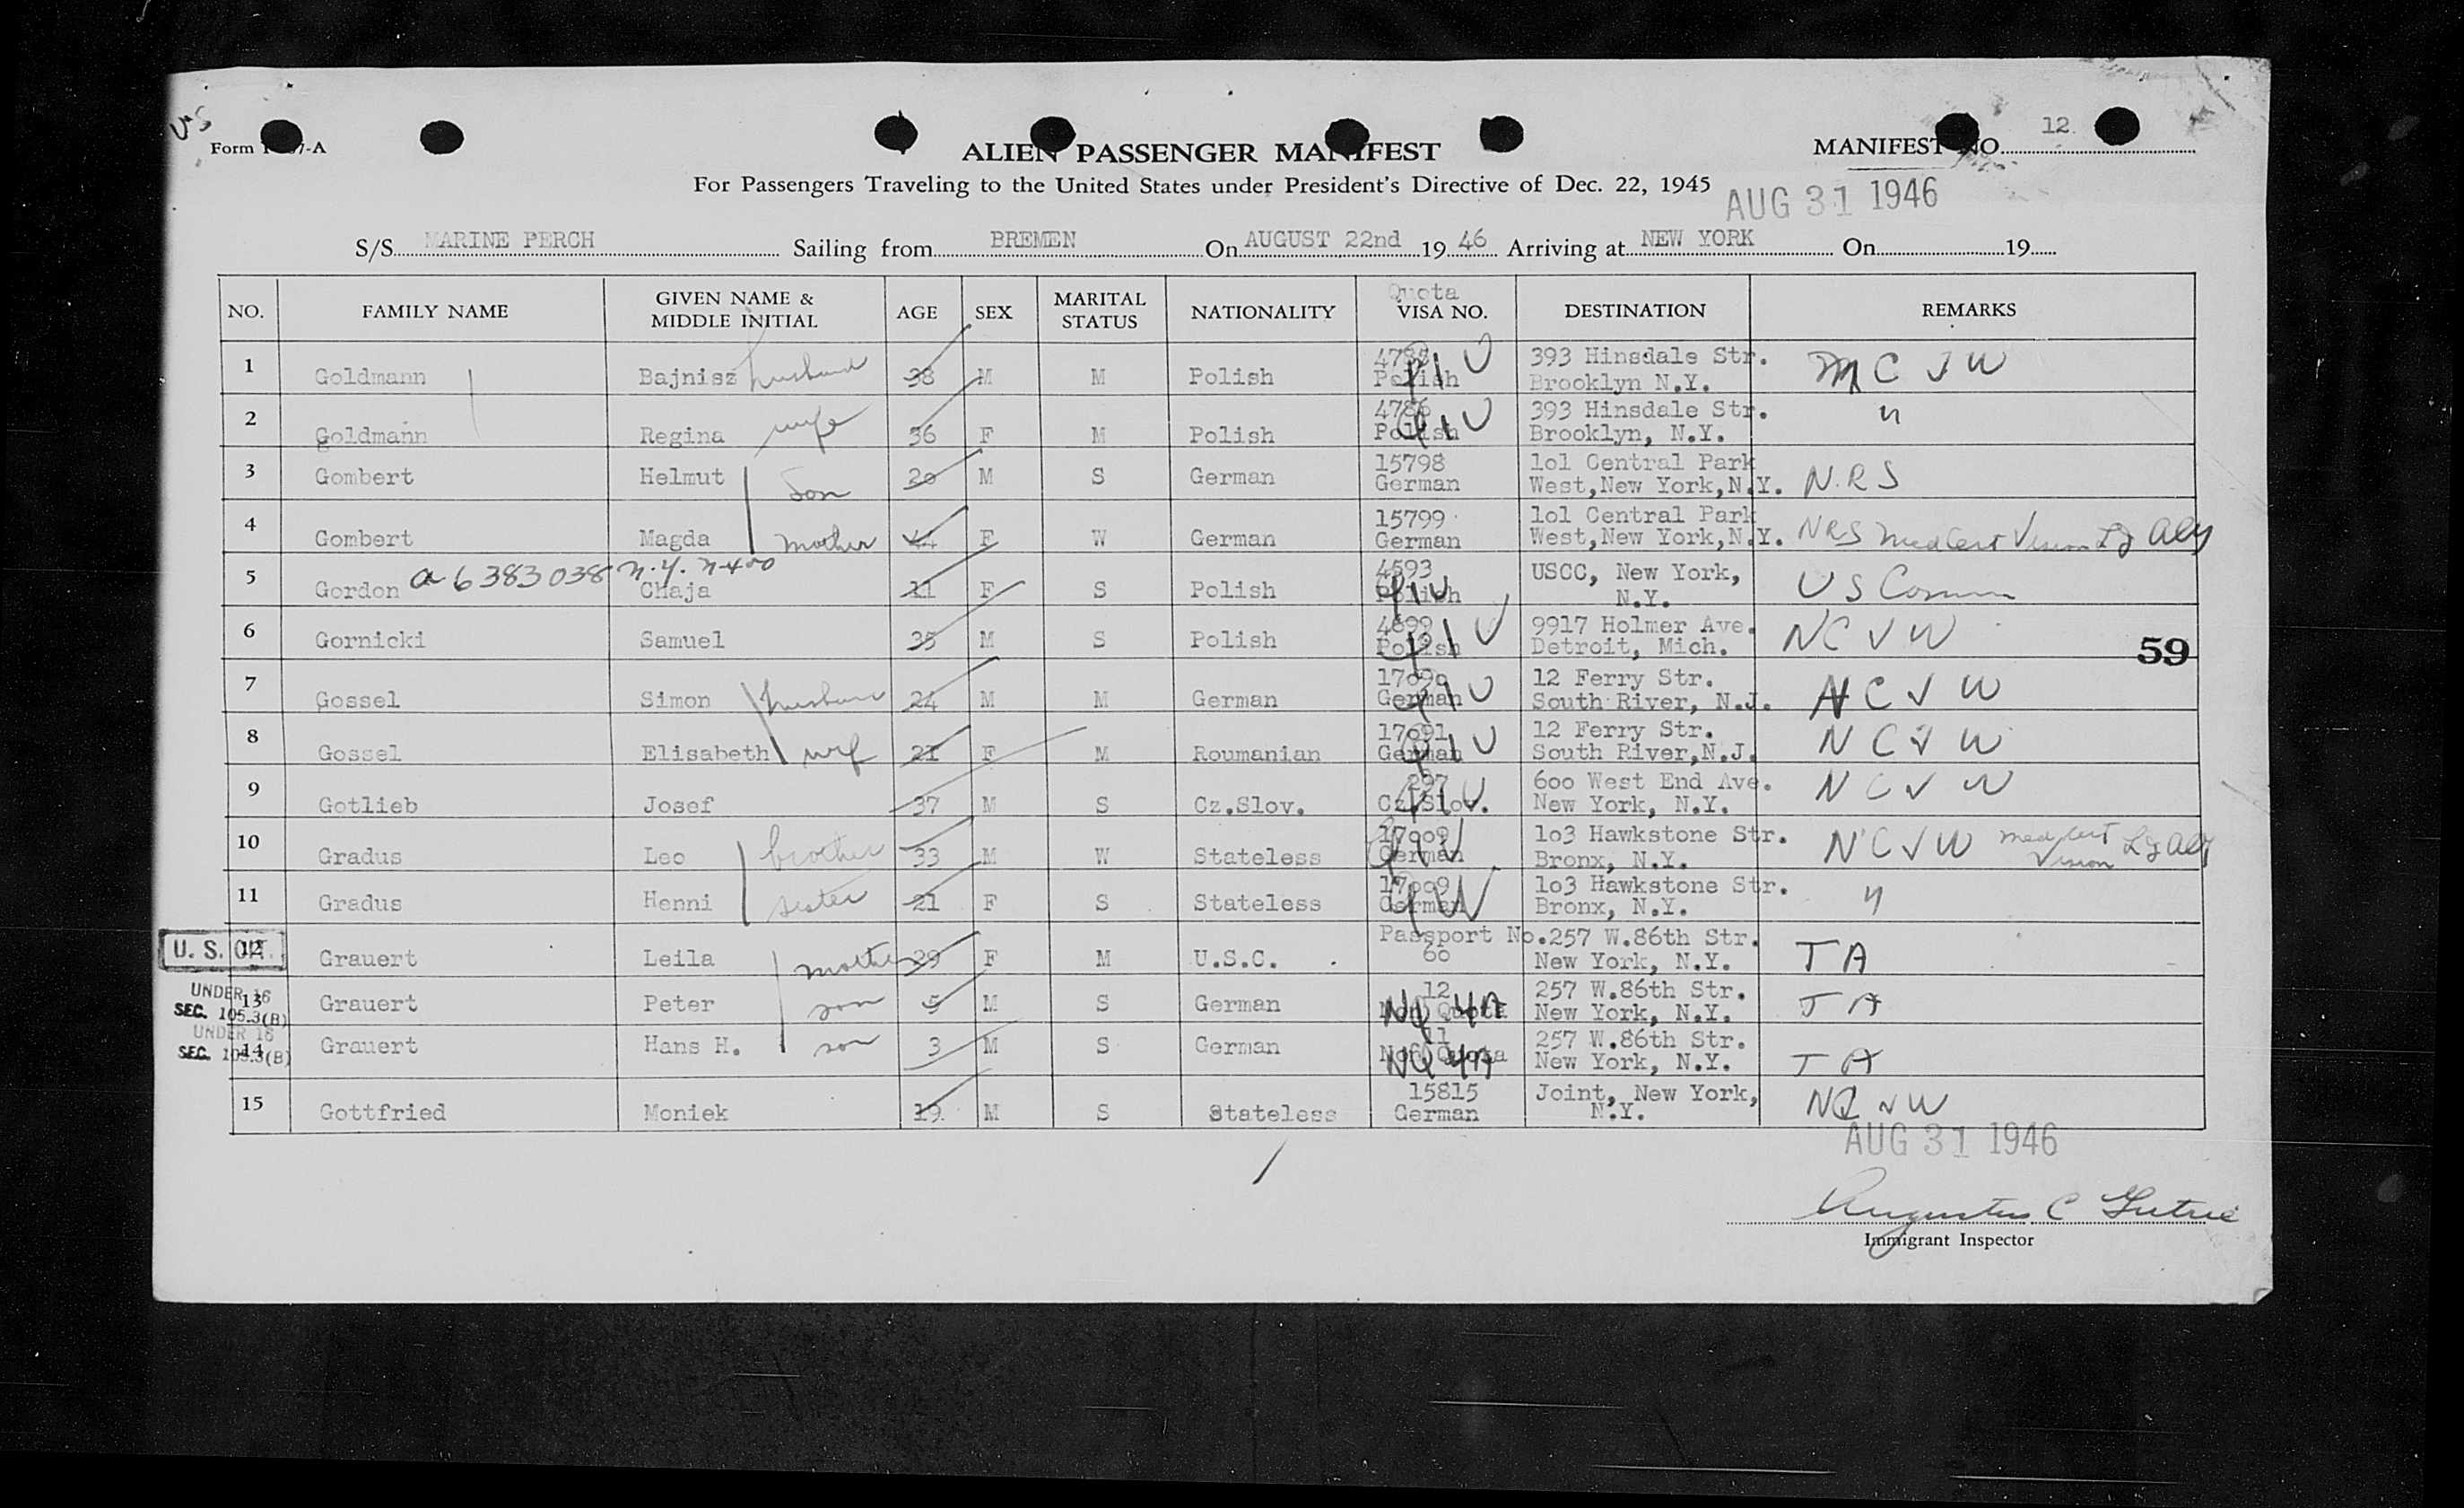 US
Form I-37-A
ALIEN PASSENGER MANIFEST
MANIFEST NO. 12
For Passengers Traveling to the United States under President's Directive of Dec. 22, 1945
AUG 31 1946
S/S MARINE PERCH Sailing from BREMEN On AUGUST 22nd 19 46 Arriving at NEW YORK On 19
NO. FAMILY NAME GIVEN NAME & MIDDLE INITIAL AGE SEX MARITAL STATUS NATIONALITY Quota VISA NO. DESTINATION REMARKS
1 Goldmann Bajnisz husband 38 M M Polish Polish 393 Hinsdale Str. Brooklyn N.Y. N C J W
2 Goldmann Regina wife 36 F M Polish 4786 Polish 393 Hinsdale Str. Brooklyn, N.Y. "
3 Gombert Helmut son 20 M S German 15798 German 1o1 Central Park West,New York,N.Y. N.R.S
4 Gombert Magda mother 44 F W German 15799 German 1o1 Central Park West,New York,N.Y. NRS Med Cert Vision
5 Gordon a 6383038 N.Y. Chaja 11 F S Polish 4593 Polish USCC, New York, N.Y. U S Comm
6 Gornicki Samuel 35 M S Polish 4699 Polish 9917 Holmer Ave. Detroit, Mich. N C J W
59
7 Gossel Simon husband 24 M M German 17o9o German 12 Ferry Str. South River, N.J. N C J W
8 Gossel Elisabeth wif 21 F M Roumanian 17o91 German 12 Ferry Str. South River,N.J. N C J W
9 Gotlieb Josef 37 M S Cz.Slov. 297 Cz.Slov. 6oo West End Ave. New York, N.Y. N C J W
10 Gradus Leo brother 33 M W Stateless German 1o3 Hawkstone Str. Bronx, N.Y. N C J W med cert Vision
11 Gradus Henni sister 21 F S Stateless 17oo9 German 1o3 Hawkstone Str. Bronx, N.Y. "
U. S. CIT.
12 Grauert Leila mother 29 F M U.S.C. Passport No. 6o 257 W.86th Str. New York, N.Y. T A
UNDER 16 SEC. 105.3(B)
13 Grauert Peter son 5 M S German 12 Non Quota NQ 4A 257 W.86th Str. New York, N.Y. T A
UNDER 16 SEC. 105.3(B)
14 Grauert Hans H. son 3 M S German 11 Non Quota NQ 4A 257 W.86th Str. New York, N.Y. T A
15 Gottfried Moniek 19 M S Stateless 15815 German Joint, New York, N.Y. N C J W
AUG 31 1946
Augustus C
Immigrant Inspector